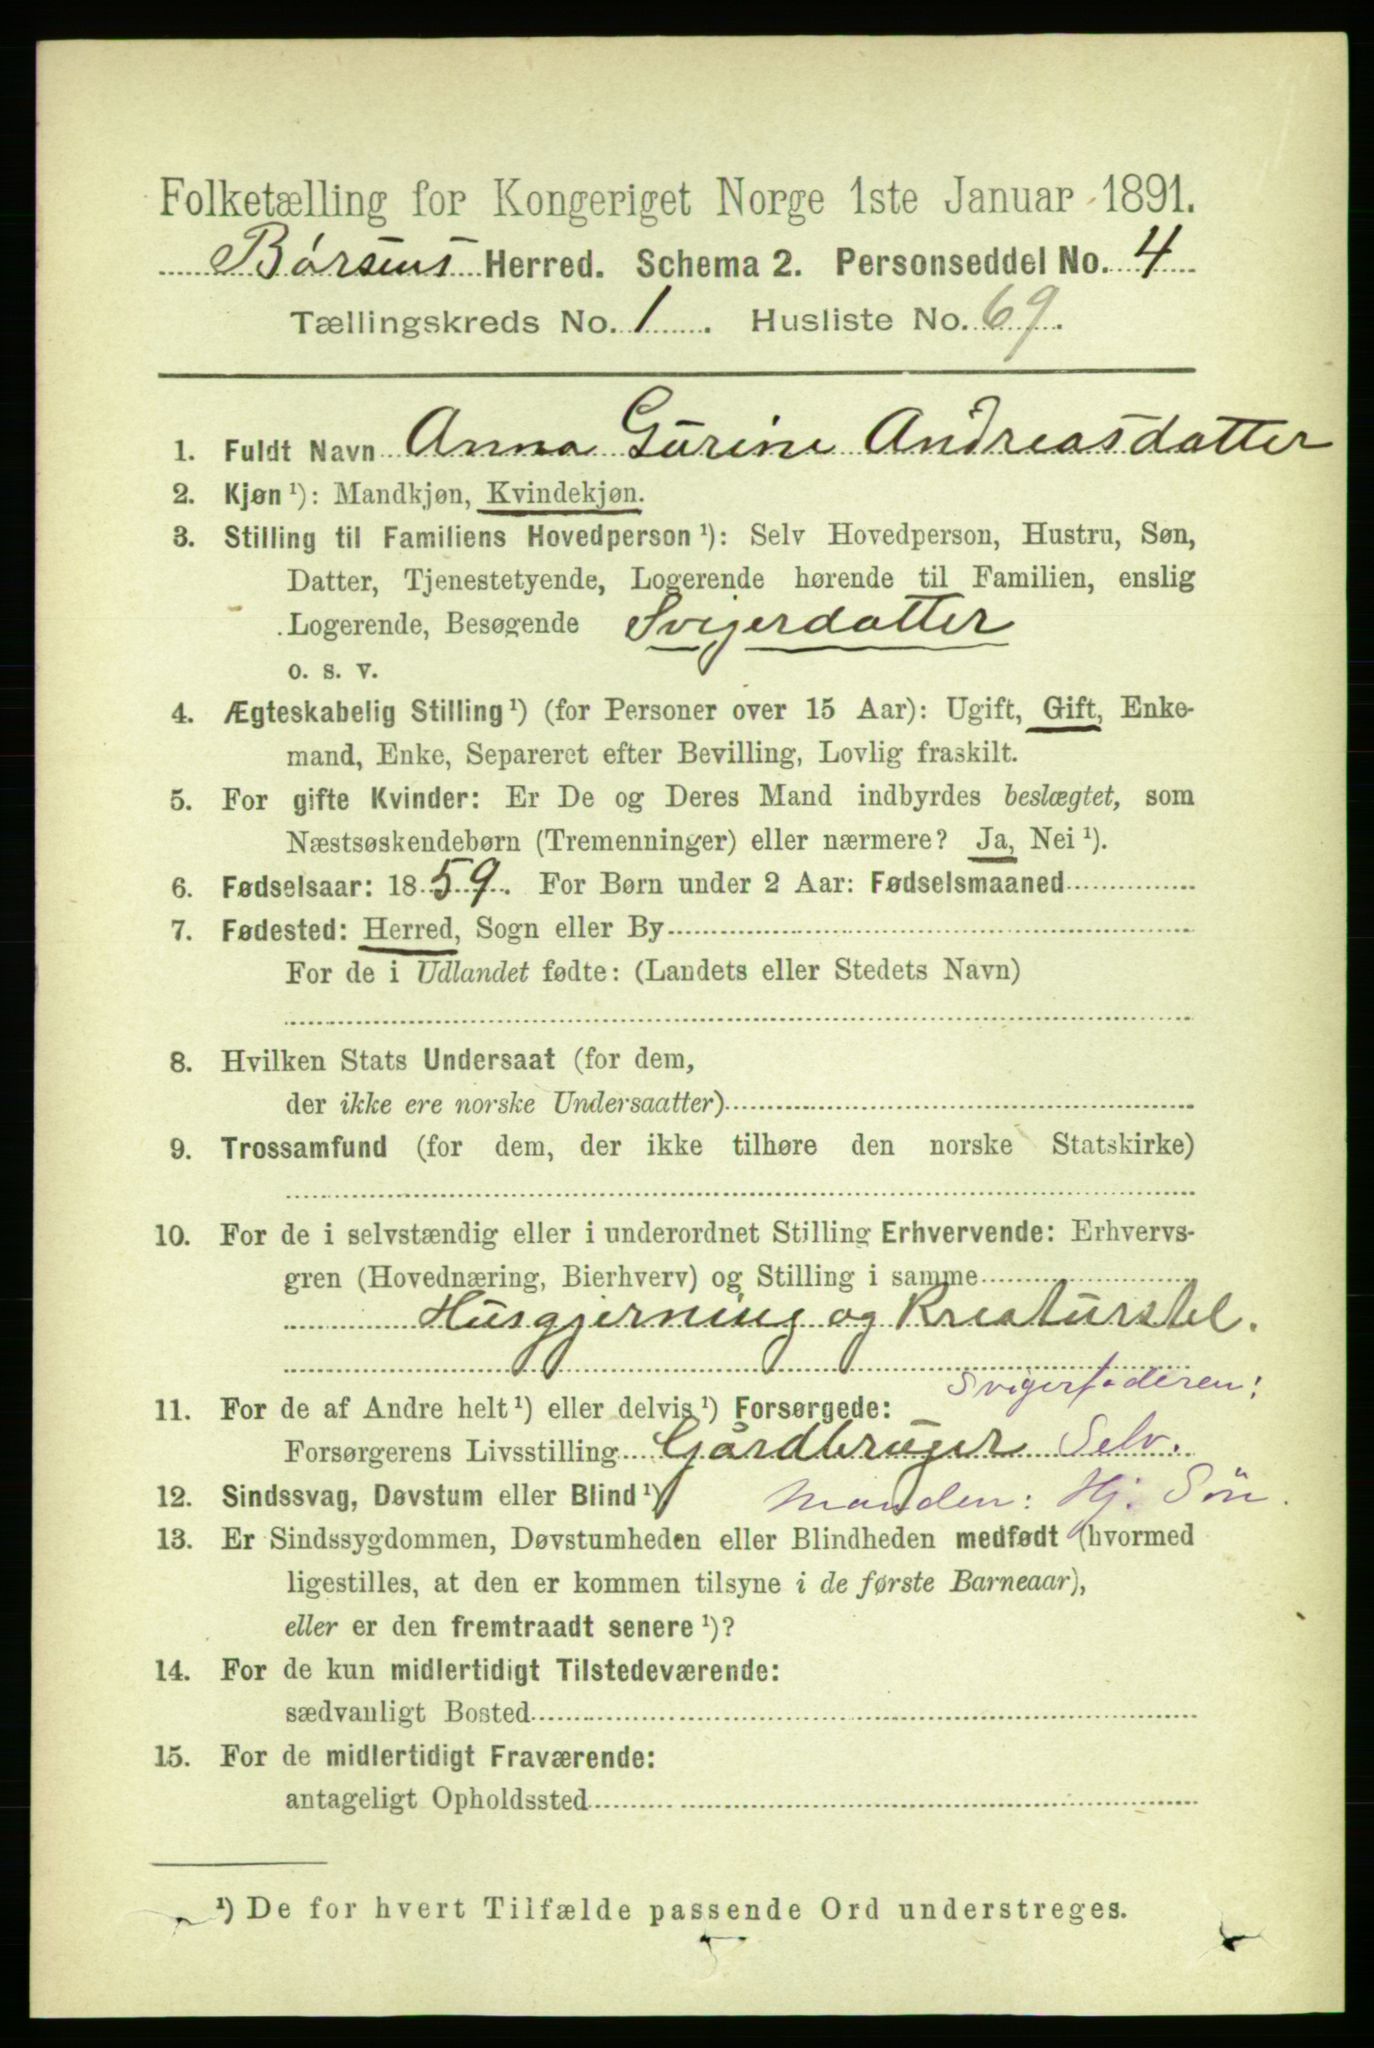 Folketælling for Kongeriget Norge 1ste Januar 1891.
Børsens Herred. Schema 2. Personseddel No. 4
Tællingskreds No. 1. Husliste No. 69.
1. Fuldt Navn Anna Gurine Andreasdatter
2. Kjøn ¹): Mandkjøn, Kvindekjøn.
3. Stilling til Familiens Hovedperson ¹): Selv Hovedperson, Hustru, Søn,
Datter, Tjenestetyende, Logerende hørende til Familien, enslig
Logerende, Besøgende Svigerdatter
o. s. v.
4. Ægteskabelig Stilling ¹) (for Personer over 15 Aar): Ugift, Gift, Enke-
mand, Enke, Separeret efter Bevilling, Lovlig fraskilt.
5. For gifte Kvinder: Er De og Deres Mand indbyrdes beslægtet, som
Næstsøskendebørn (Tremenninger) eller nærmere? Ja, Nei ¹).
6. Fødselsaar: 1859. For Børn under 2 Aar: Fødselsmaaned
7. Fødested: Herred, Sogn eller By
For de i Udlandet fødte: (Landets eller Stedets Navn)
8. Hvilken Stats Undersaat (for dem,
der ikke ere norske Undersaatter)
9. Trossamfund (for dem, der ikke tilhøre den norske Statskirke)
10. For de i selvstændig eller i underordnet Stilling Erhvervende: Erhvervs-
gren (Hovednæring, Bierhverv) og Stilling i samme
Husgjerning og Kreaturstel.
Svigerfaderen:
11. For de af Andre helt ¹) eller delvis ¹) Forsørgede:
Forsørgerens Livsstilling Gårdbruger Selv.
12. Sindssvag, Døvstum eller Blind ¹) Manden: Hj. Sön.
13. Er Sindssygdommen, Døvstumheden eller Blindheden medfødt (hvormed
ligestilles, at den er kommen tilsyne i de første Barneaar),
eller er den fremtraadt senere ¹)?
14. For de kun midlertidigt Tilstedeværende:
sædvanligt Bosted
15. For de midlertidigt Fraværende:
antageligt Opholdssted
¹) De for hvert Tilfælde passende Ord understreges.